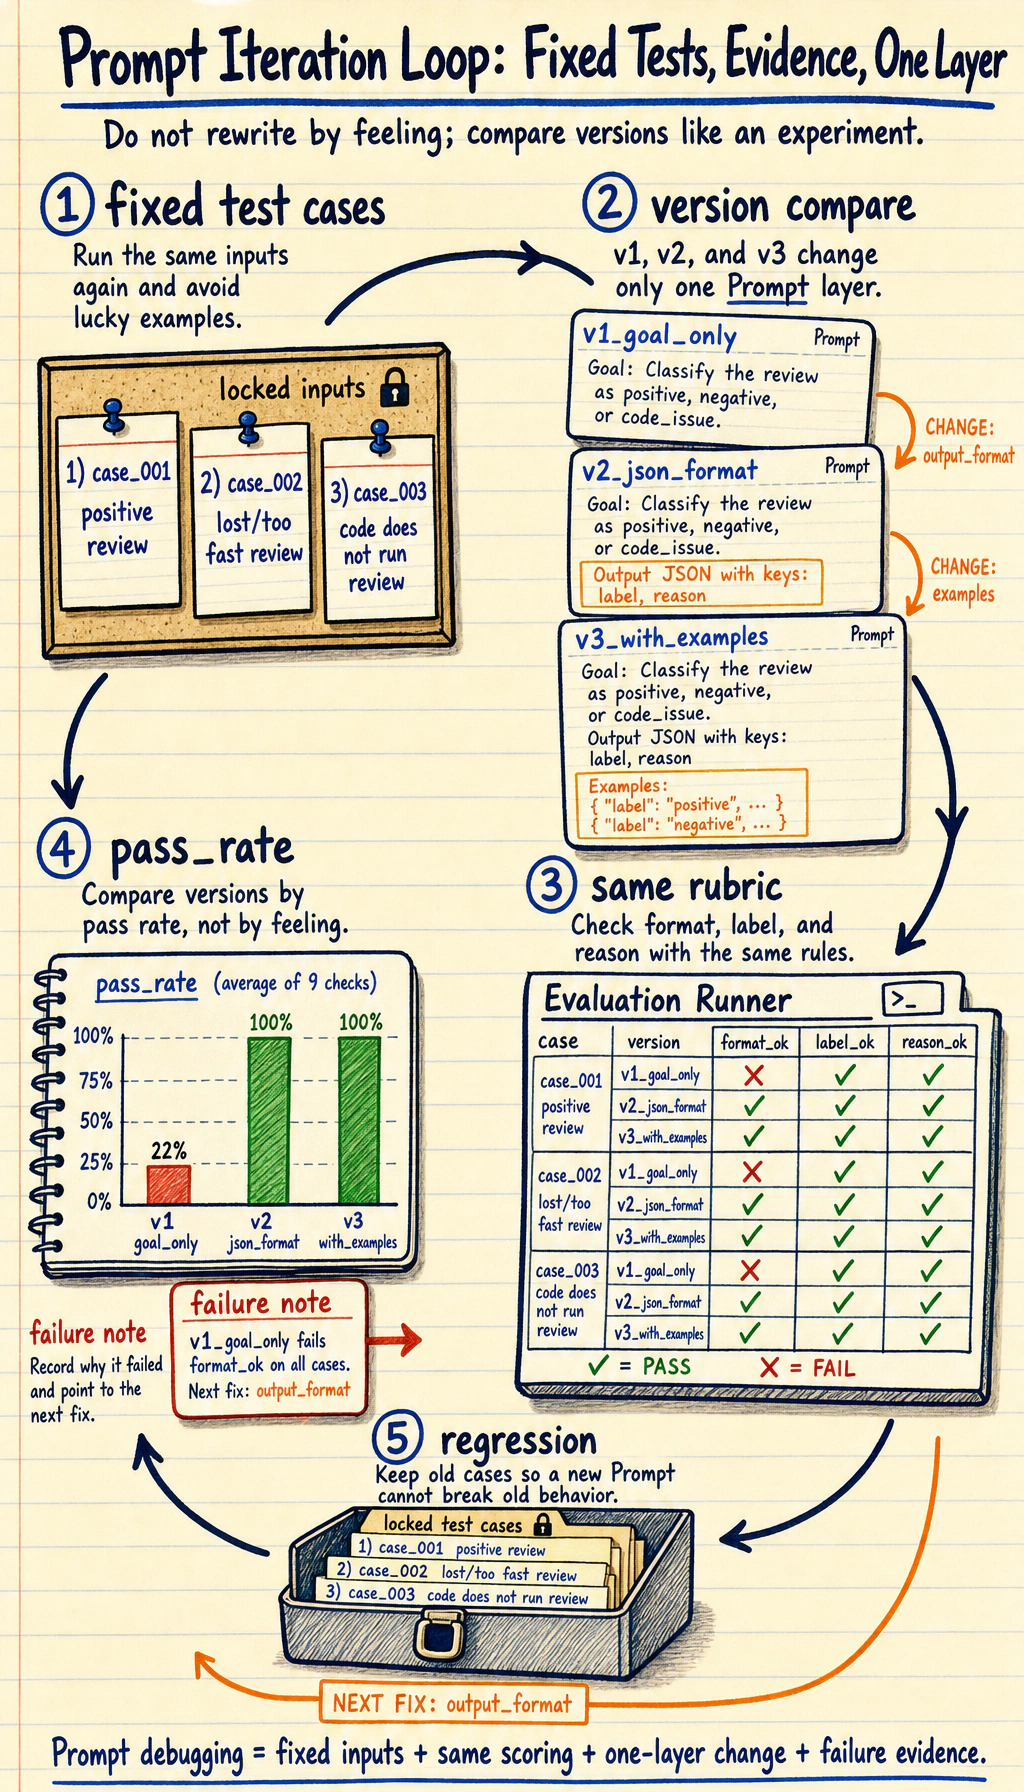 Prompt Iteration Loop: Fixed Tests, Evidence, One Layer
Do not rewrite by feeling; compare versions like an experiment.
1 fixed test cases
Run the same inputs
again and avoid
lucky examples.
locked inputs
1) case_001
positive
review
2) case_002
lost/too
fast review
3) case_003
code does
not run
review
2 version compare
v1, v2, and v3 change
only one Prompt layer.
v1_goal_only Prompt
Goal: Classify the review
as positive, negative,
or code_issue.
CHANGE:
output_format
v2_json_format Prompt
Goal: Classify the review
as positive, negative,
or code_issue.
Output JSON with keys:
label, reason
CHANGE:
examples
v3_with_examples Prompt
Goal: Classify the review
as positive, negative,
or code_issue.
Output JSON with keys:
label, reason
Examples:
{ "label": "positive", ... }
{ "label": "negative", ... }
3 same rubric
Check format, label, and
reason with the same rules.
Evaluation Runner >_
case version format_ok label_ok reason_ok
case_001
positive
review
v1_goal_only ✗ ✓ ✓
v2_json_format ✓ ✓ ✓
v3_with_examples ✓ ✓ ✓
case_002
lost/too
fast review
v1_goal_only ✗ ✓ ✓
v2_json_format ✓ ✓ ✓
v3_with_examples ✓ ✓ ✓
case_003
code does
not run
review
v1_goal_only ✗ ✓ ✓
v2_json_format ✓ ✓ ✓
v3_with_examples ✓ ✓ ✓
✓ = PASS ✗ = FAIL
4 pass_rate
Compare versions by
pass rate, not by feeling.
pass_rate (average of 9 checks)
100%
75%
50%
25%
0%
22%
100%
100%
v1
goal_only
v2
json_format
v3
with_examples
failure note
Record why it failed
and point to the
next fix.
failure note
v1_goal_only fails
format_ok on all cases.
Next fix: output_format
5 regression
Keep old cases so a new Prompt
cannot break old behavior.
locked test cases
1) case_001 positive review
2) case_002 lost/too fast review
3) case_003 code does not run review
NEXT FIX: output_format
Prompt debugging = fixed inputs + same scoring + one-layer change + failure evidence.